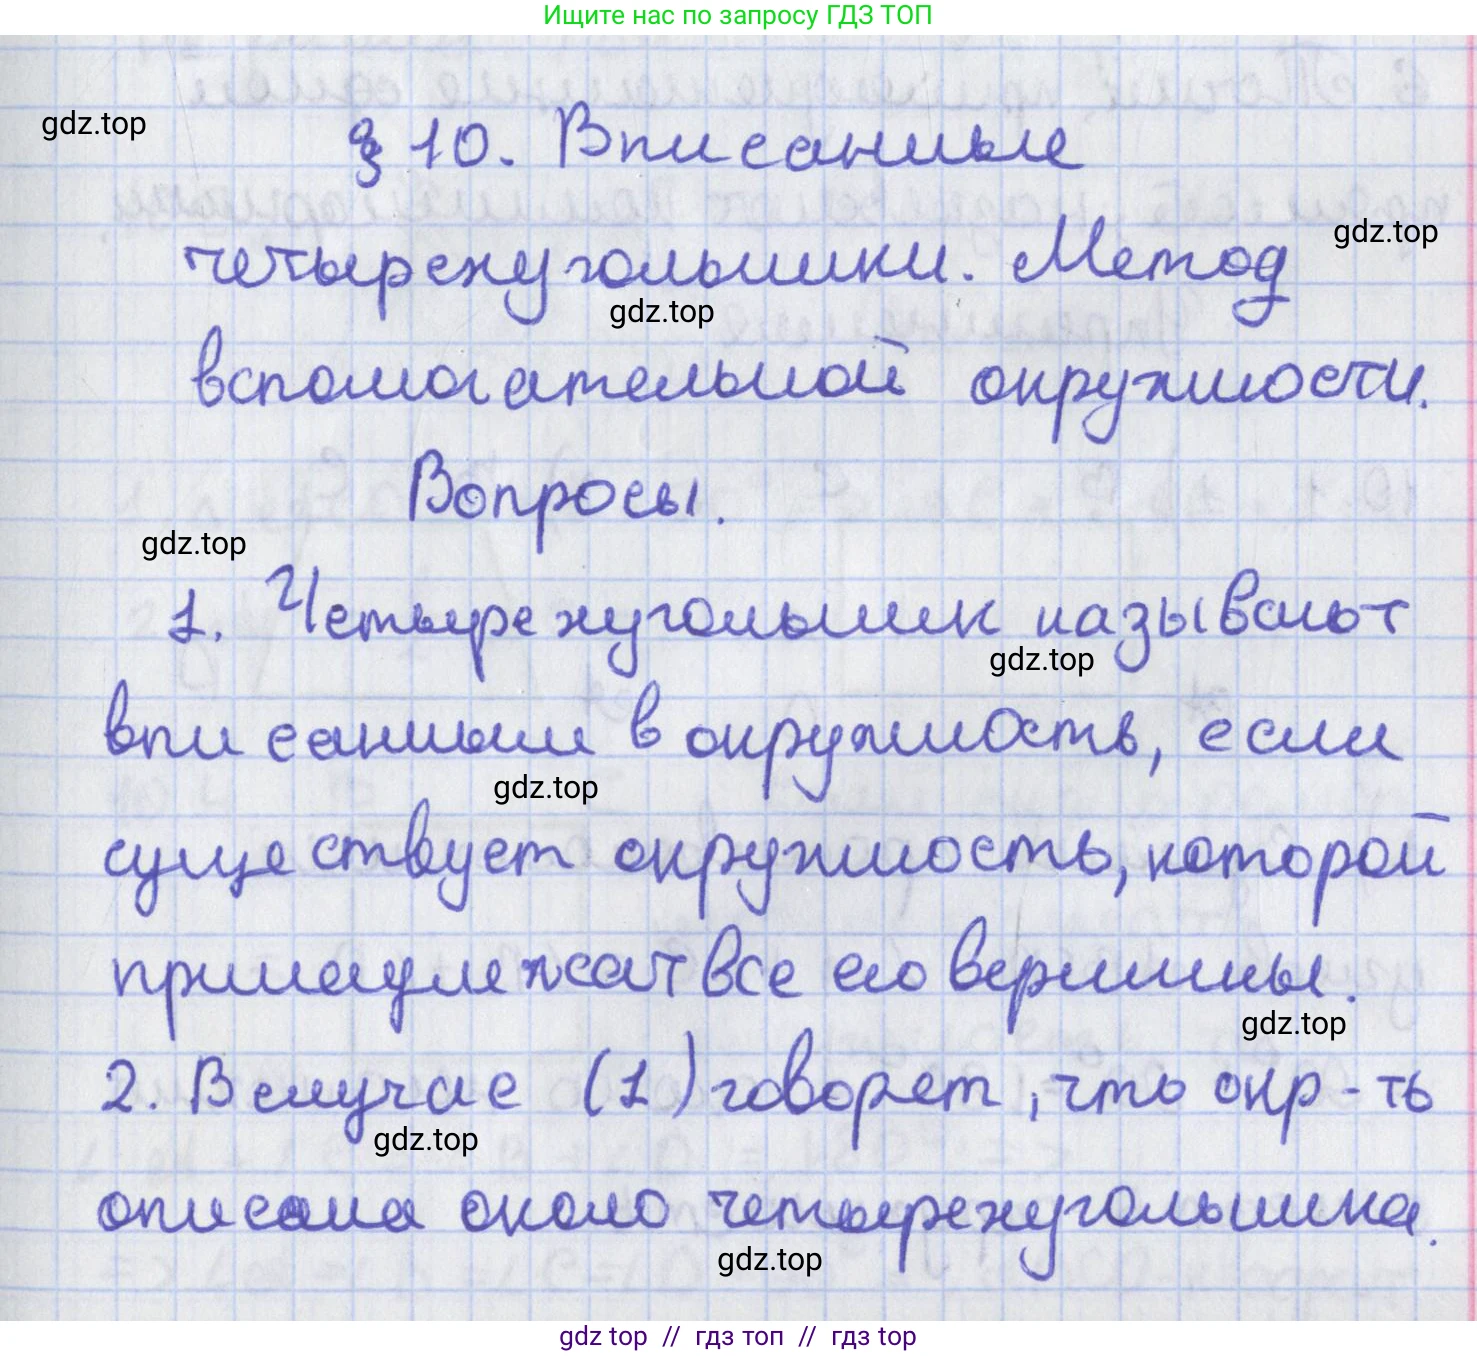 Ищите нас по запросу ГДЗ ТОП
gdz.top
§ 10. Вписанные
gdz.top
четырехугольники. Метод
gdz.top
вспомогательной окружности.
Вопросы.
gdz.top
1. Четырехугольник называют
gdz.top
вписанным в окружность, если
gdz.top
существует окружность, которой
принадлежат все его вершины.
gdz.top
2. В случае (1) говорят, что окр-ть
gdz.top
описана около четырехугольника.
gdz.top
gdz top // гдз топ // гдз top